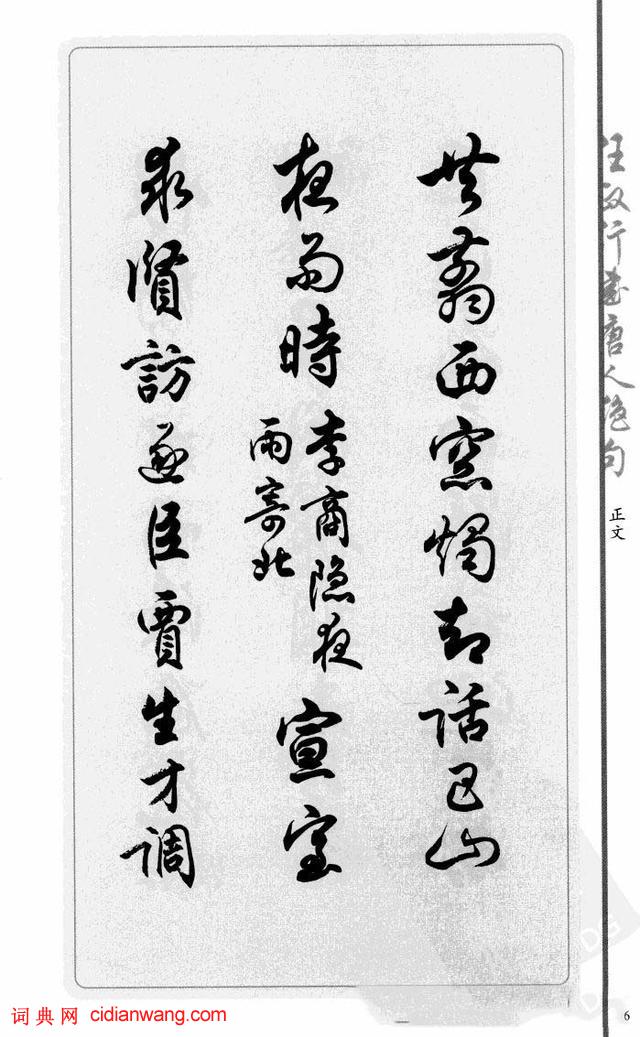 共剪西窓燭却话巴山
夜雨時 李商隐夜
雨寄北 宣室
求賢訪逐臣賈生才调
任政行书唐人绝句
正文
词典网 cidianwang.com
6